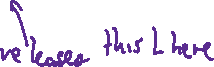 releases this L here